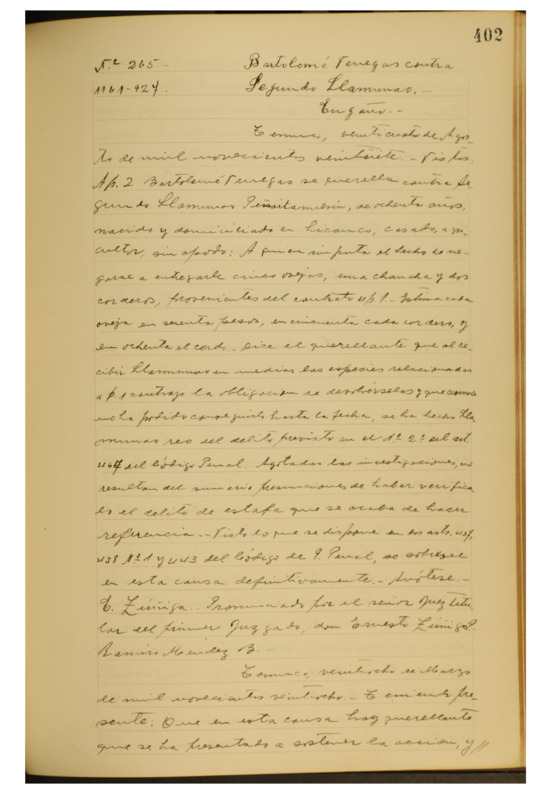 402
N.º 265.- Bartolomé Venegas contra
1161-927.. Segundo Llamunao.-
Engaño.-
Temuco, veinticuatro de Agos-
to de mil novecientos veintisiete.- Vistos:
A p. 2 Bartolomé Venegas se querella contra Se-
gundo Llamunao, de ochenta años,
nacido y domiciliado en, casado, agri-
cultor, sin apodo: A quien imputa el hecho de ne-
garse a entregarle cinco ovejas, una chancha y dos
corderos, provenientes del contrato a p 1.- Estima cada
oveja en sesenta pesos, en cincuenta cada cordero, y
en ochenta el cerdo.- Dice el querellante que al re-
cibir Llamunao en medias las especies relacionadas
a p. 1 contrajo la obligacion de devolvérselas y que como
no ha podido conseguirlo hasta la fecha, se ha hecho Lla-
munao reo del delito previsto en el Nº 2º del art.
467 del Código Penal. Agotadas las investigaciones, no
resultan del sumario presunciones de haber verifica-
do el delito de estafa que se acaba de hacer
referencia.- Visto lo que se dispone en los arts. 437,
438 Nº 1 y 443 del Código de P. Penal, se sobresee
en esta causa definitivamente.- Anótese.-
E. Zúñiga. Pronunciado por el señor Juez titu-
lar del primer Juzgado, don Ernesto Zúñiga P.
Ramiro Mendez B.-
Temuco, veintiocho de Marzo
de mil novecientos veintiocho.- Teniendo pre-
sente: Que en esta causa hay querellante
que se ha presentado a sostener la accion, y//